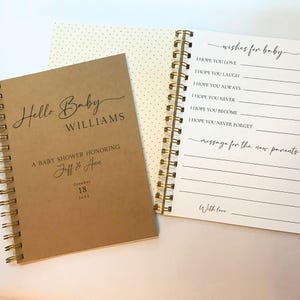 Hello Baby
WILLIAMS
A BABY SHOWER HONORING
Jeff & Ann
18
wishes for baby
I HOPE YOU LOVE
I HOPE YOU LAUGH
I HOPE YOU ALWAYS
I HOPE YOU NEVER
I HOPE YOU BECOME
I HOPE YOU NEVER FORGET
message for the new parents
With love